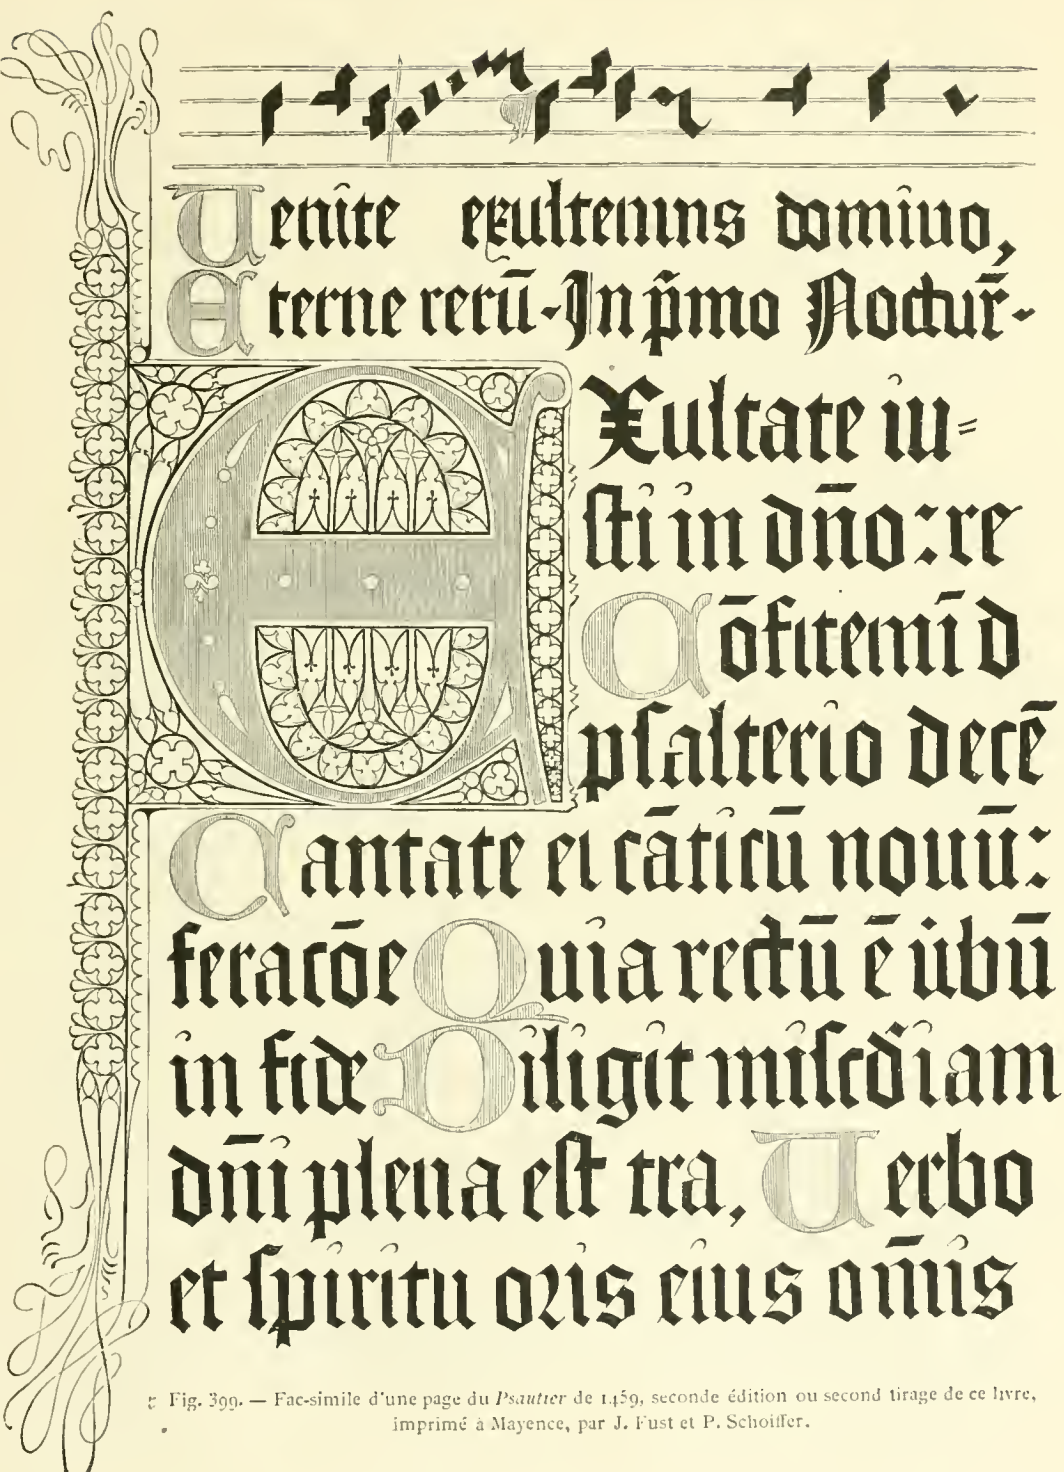 Uenite exultemus domino,
Eterne rerū- In p̄mo Nocturr̄-
EXultate iu=
sti in dn̄o: re
Cōfitemī d
psalterio decē
Cantate ei cāticū nouū:
feracōe Quia rectū ē ūbū
in fide Diligit misc̄diam
dn̄i plena est tra, Uerbo
et spiritu oris eius om̄is
Fig. 399. — Fac-simile d'une page du Psautier de 1459, seconde édition ou second tirage de ce livre,
imprimé à Mayence, par J. Fust et P. Schoiffer.